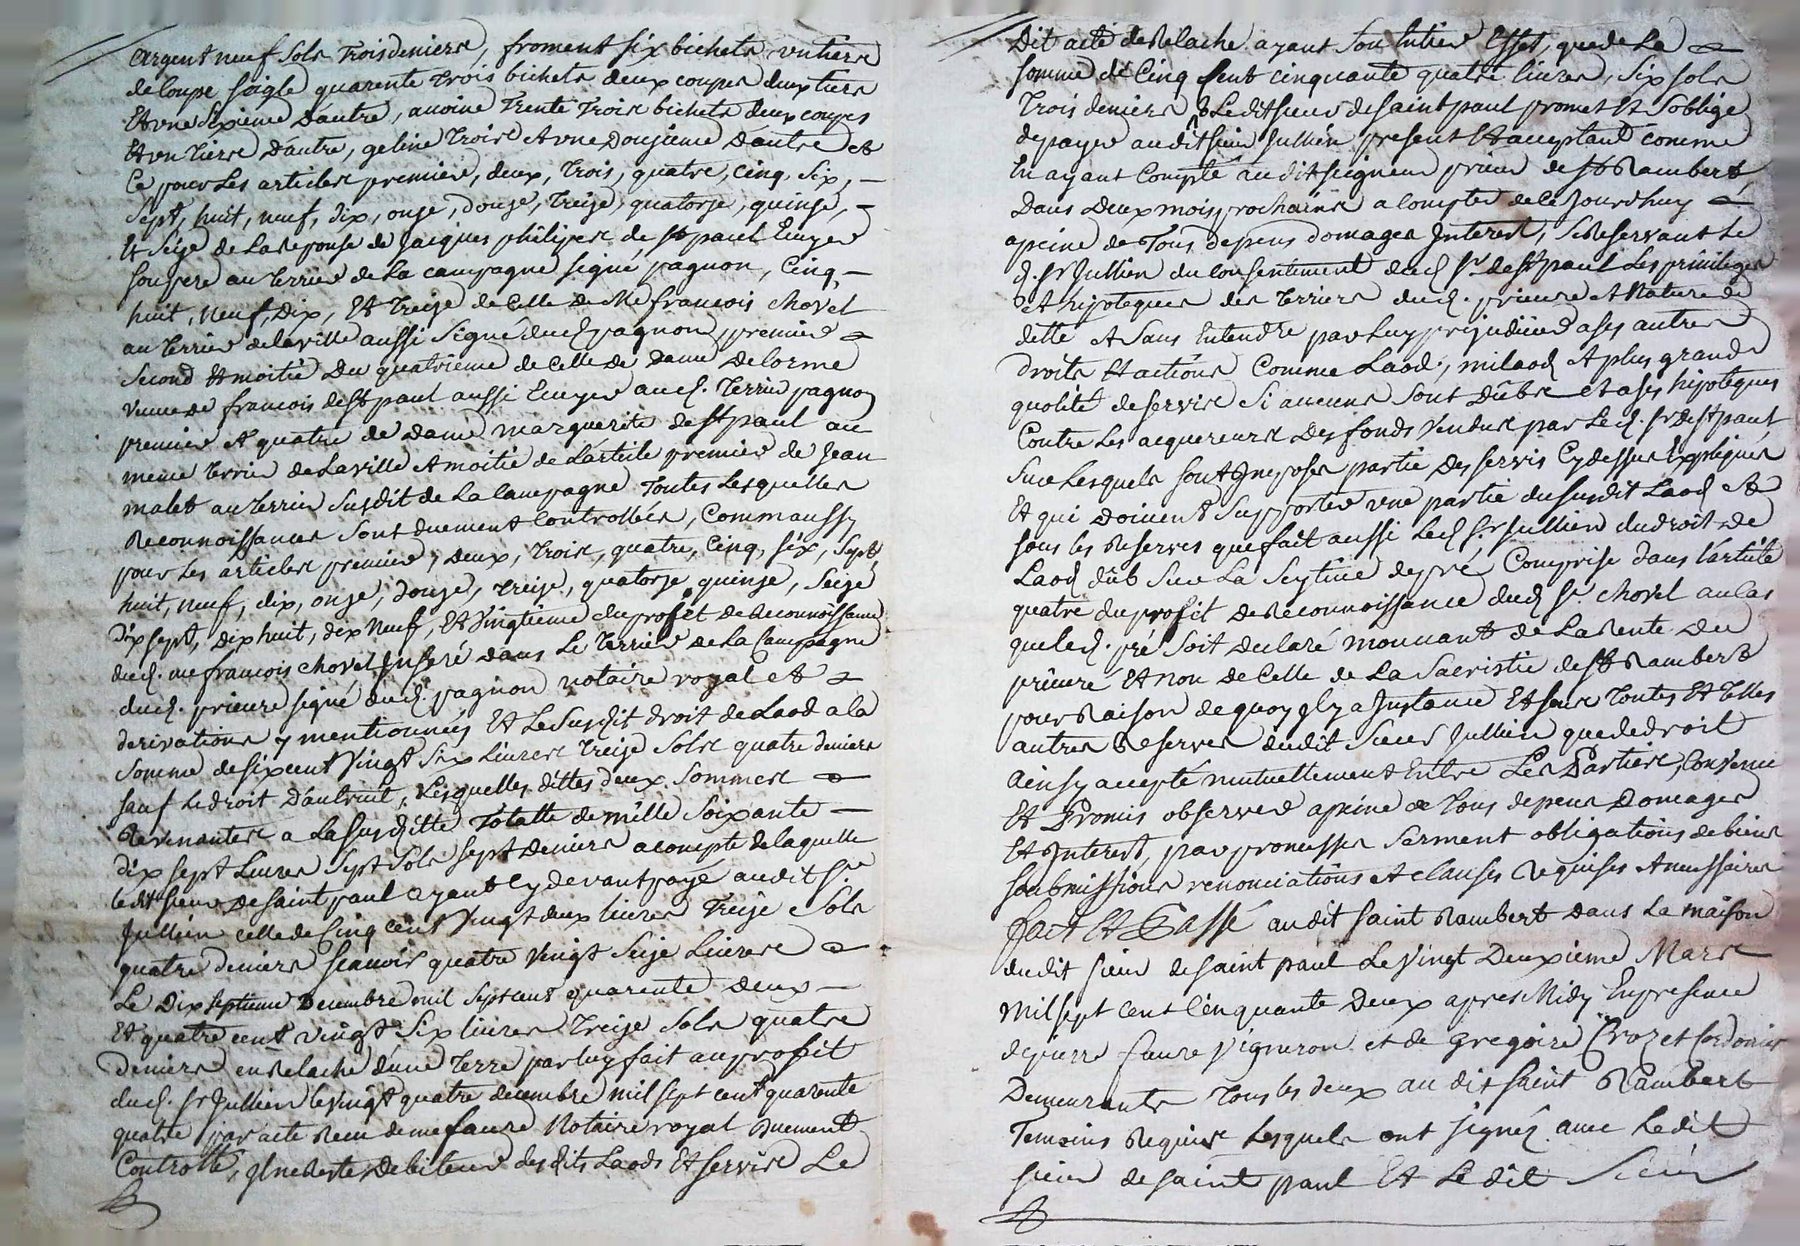 argent neuf sols trois deniers, froment six bichets un tiers
de coupe soigle quarente trois bichets deux coupes deux tiers
et une sixieme d'autre, avoine trente trois bichets deux coupes
et un tiers d'autre, geline trois et une douzième d'autre et
ce pour les articles premiere, deux, trois, quatre, cinq, six,
sept, huit, neuf, dix, onze, douze, treize, quatorze, quinze,
et seize de la reponse de Jacques philipes de st paul Ecuyer
son pere au terrier de la campagne signé pagnon, cinq
huit, neuf, dix, et treize de celle de Me francois chovet
au terrier de la ville aussi signé dud. pagnon, premier
second et moitié du quatrième de celle de dame Delorme
veuve de francois de st paul aussi Ecuyer aud. terrier pagnon
premier et quatre de dame marguerite de st paul au
meme terrier de la ville et moitié de l'article premier de Jean
malet au terrier susdit de la campagne toutes lesquelles
reconnoissances sont duement controllées, comm aussy
pour les articles premier, deux, trois, quatre, cinq, six, sept,
huit, neuf, dix, onze, douze, treize, quatorze, quinze, seize
dix sept, dix huit, dix neuf, et vingtieme du profet de reconnoissance
dud. me francois chovet inseré dans le terrier de la campagne
dud. prieure signé dud. pagnon notaire royal et
derivations y mentionnées et le susdit droit de laod a la
somme de six cent vingt six livres treize sols quatre deniers
sauf le droit d'autruit, lesquelles dittes deux sommes
revenantes a la susditte totalle de mille soixante
dix sept livres sept sols sept deniers a compte de laquelle
ledit sieur de saint paul ayant cy devant payé audit sr
Jullien celle de cinq cent vingt deux livres treize sols
quatre deniers scauoir quatre vingt seize livres
le dix septieme decembre mil sept cent quarente deux
et quatre cent vingt six livres treize sols quatre
deniers en relache d'une terre par luy fait au profit
dud. sr Jullien le vingt quatre decembre mil sept cent quarente
quatre par acte recu de me faure Notaire royal duement
controllé, il ne reste debiteur desdits laods et servis le
dit acte de relache ayant son entier effet, que de la
somme de cinq cent cinquante quatre livres, six sols
trois deniers que ledit sieur de saint paul promet et soblige
de payer audit sieur Jullien present et acceptant comme
en ayant compté audit seigneur prieur de st Rambert,
dans deux mois prochains a compter de ce jourdhuy
a peine de tous depens domages interest, se reservant le
d. sr Jullien du consentement dud. sr de st paul les privileges
et hipoteques des terriers dud. prieure et nature de
dette et sans entendre par luy prejudicier a ses autres
droits et actions comme laod, milaod et plus grande
qualité de servis si aucuns sont dübs et a ses hipoteques
contre les acquereurs des fonds vendus par le d. sr de st paul
sur lesquels sont imposés partie des servis cy dessus expliqués
et qui doivent supporter une partie du susdit laod et
sous les reserves que fait aussi led. sr Jullien du droit de
laod düb sur la seytive de pré comprise dans l'article
quatre du profit de reconnoissance dud. sr chovet au cas
que led. pré soit declaré mouvant de la rente du
prieuré et non de celle de la sacristie de st Rambert
pour raison de quoy il y a Instance et sous toutes et telles
autres reserves dudit sieur Jullien que de droit
ainsy accepté mutuellement entre les Parties, convenu
et promis observer a peine de tous depens domages
et interest, par promesses serment obligations de biens
soubmissions renonciations et clauses requises et necessaires
fait et Passé audit saint Rambert dans la maison
dudit sieur de saint paul le vingt deuxieme Mars
mil sept cent cinquante deux apres Midy en presence
de pierre faure vigneron et de gregoire Crozet cordonier
demeurants tous les deux audit saint Rambert
temoins requis lesquels ont signés avec ledit
sieur de saint paul et ledit sieur